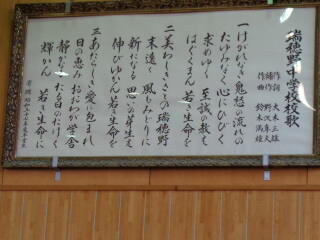 瑞穂野中学校校歌
作詞 大木三雄
補作 野沢卓夫
作曲 鈴木満雄
一 けがれなき鬼怒の流れの
たゆみなく心にひびく
求めゆく至誠の教え
はぐくまん若き生命を
二 美わしきさとの瑞穂野
末遠く風もみどりに
新たなる思いの芽生え
伸びゆかん若き生命を
三 あたらしき愛に包まれ
日の恵みおおわが学舎
静かなる自のたけく
輝かん若き生命に